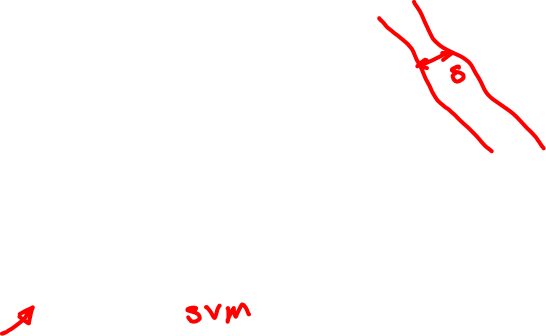 δ
svm